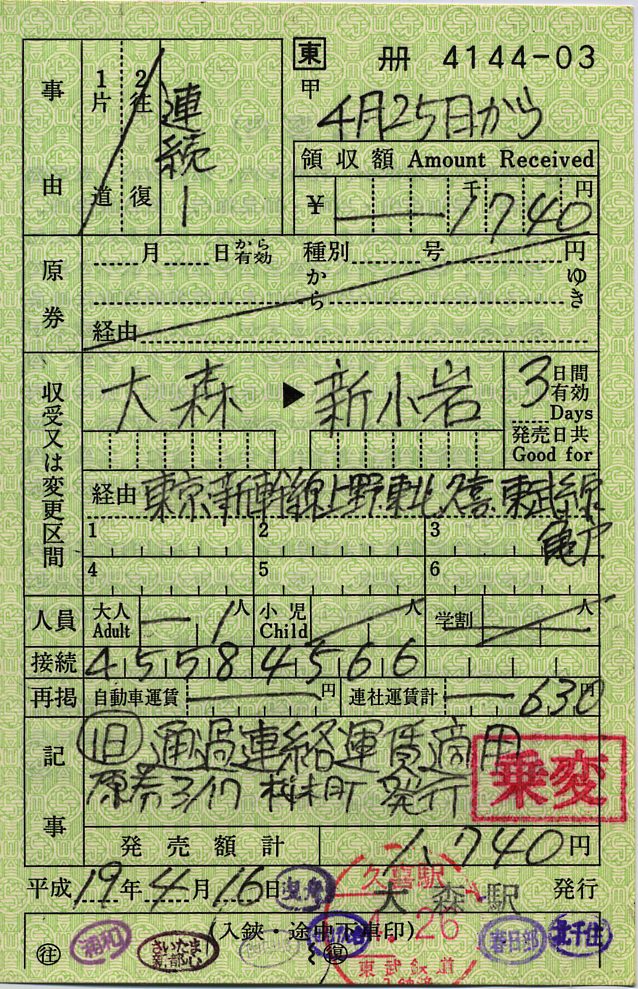 東 冊 4144-03
事由
1片道
2往復
連続1
甲
4月25日から
領収額 Amount Received
¥ 千 円
1740
原券
月 日 から有効 種別 号 円
から ゆき
経由
収受又は変更区間
大森 ▶ 新小岩
3日間有効
Days
発売日共
Good for
経由 東京、新幹線、上野、東北、久喜、東武線
亀戸
1 2 3
4 5 6
人員 大人 Adult 1人 小児 Child 人 学割 人
接続 4558 4566
再掲 自動車運賃 円 連社運賃計 630円
記事
旧 通過連絡運賃適用
原券3/17 桜木町 発行
乗変
発売額計 1,740円
平成19年4月16日 大森駅 発行
久喜駅
4.26
東武鉄道
(入鋏・途中下車印)
往 復
浦和
さいたま新都心
春日部
北千住